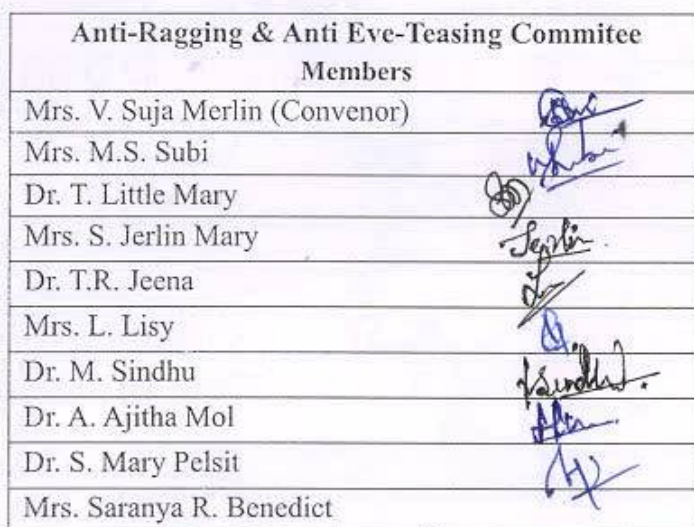 Anti-Ragging & Anti Eve-Teasing Commitee
Members
Mrs. V. Suja Merlin (Convenor)
Mrs. M.S. Subi
Dr. T. Little Mary
Mrs. S. Jerlin Mary Jerlin.
Dr. T.R. Jeena
Mrs. L. Lisy
Dr. M. Sindhu
Dr. A. Ajitha Mol
Dr. S. Mary Pelsit
Mrs. Saranya R. Benedict